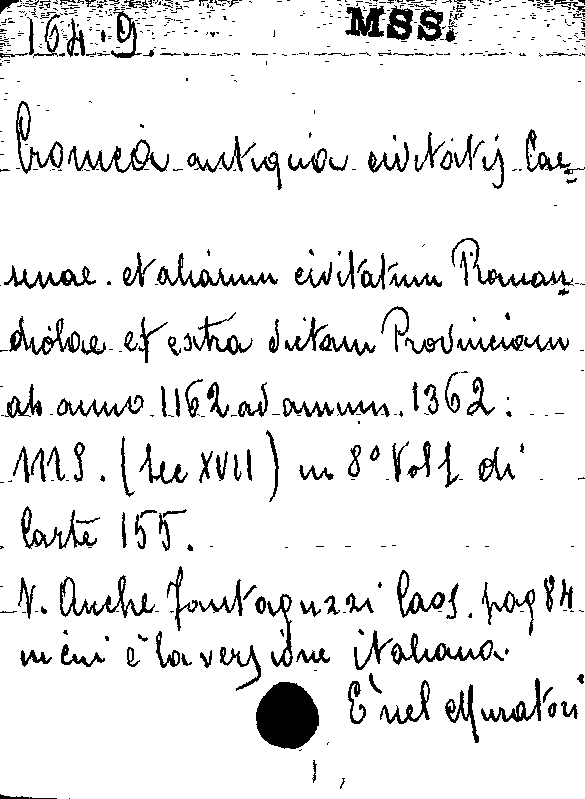 164.9.
MSS.
Cronica antiqua civitatis Cae=
senae. et aliarum civitatum Roman=
diolae et extra dictam Provinciam
ab anno 1162 ad annum. 1362:
MS. (Sec XVII) in 8° Vol 1 di
Carte 155.
V. Anche Fantaguzzi Caos. pag 84
in cui è la versione italiana.
È nel Muratori